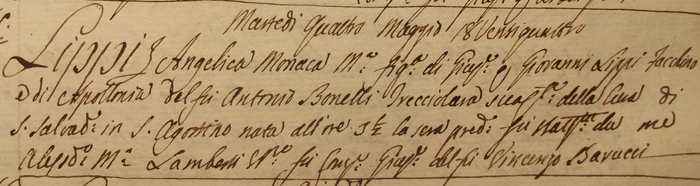 Martedi Quatro Maggio 18Ventiquattro
Lippi Angelica Monaca Mª figª di Giusᵉ e Giovanni Lippi Facchino
e di Apollonia del fu Antonio Bonelli Trecciolara della Cura di
S. Salvadᵉ in S. Agostino nata all'ore 3½ la sera predª fu da me
Alesdᵒ Mª Lamberti fu Giusᵉ del fu Vincenzo Barucci